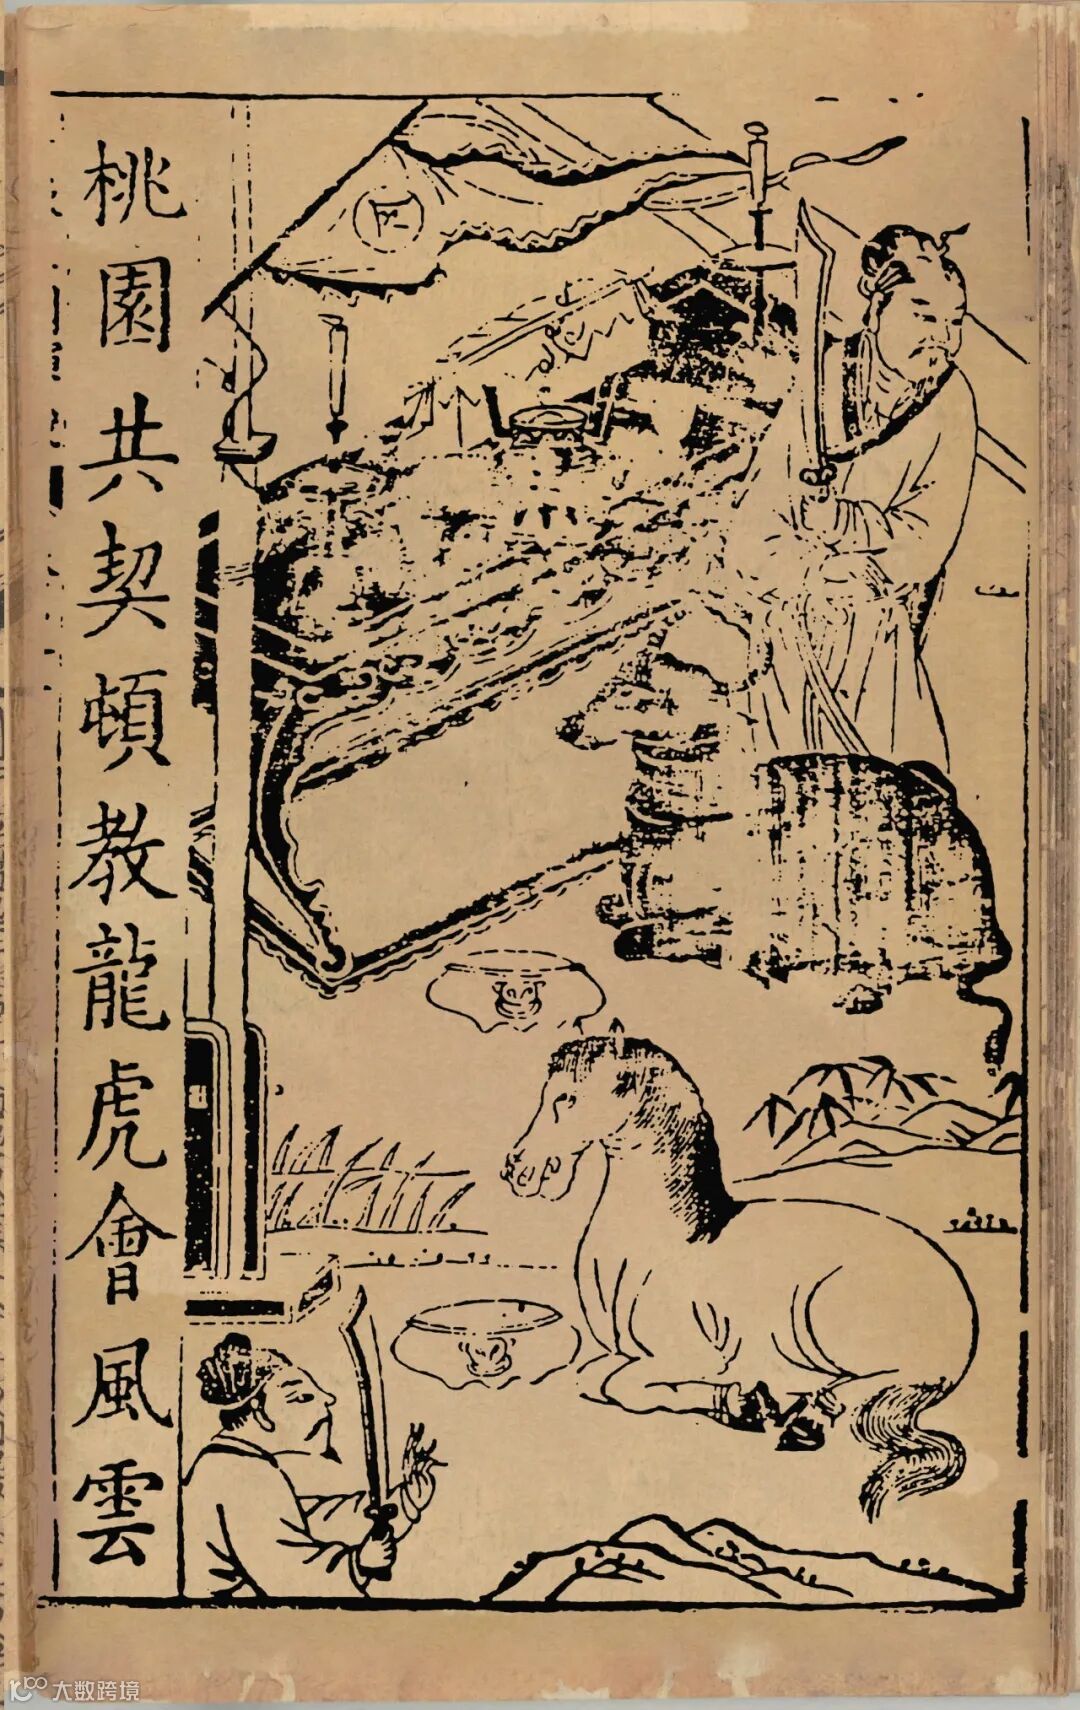 桃園共契頓教龍虎會風雲
大数跨境